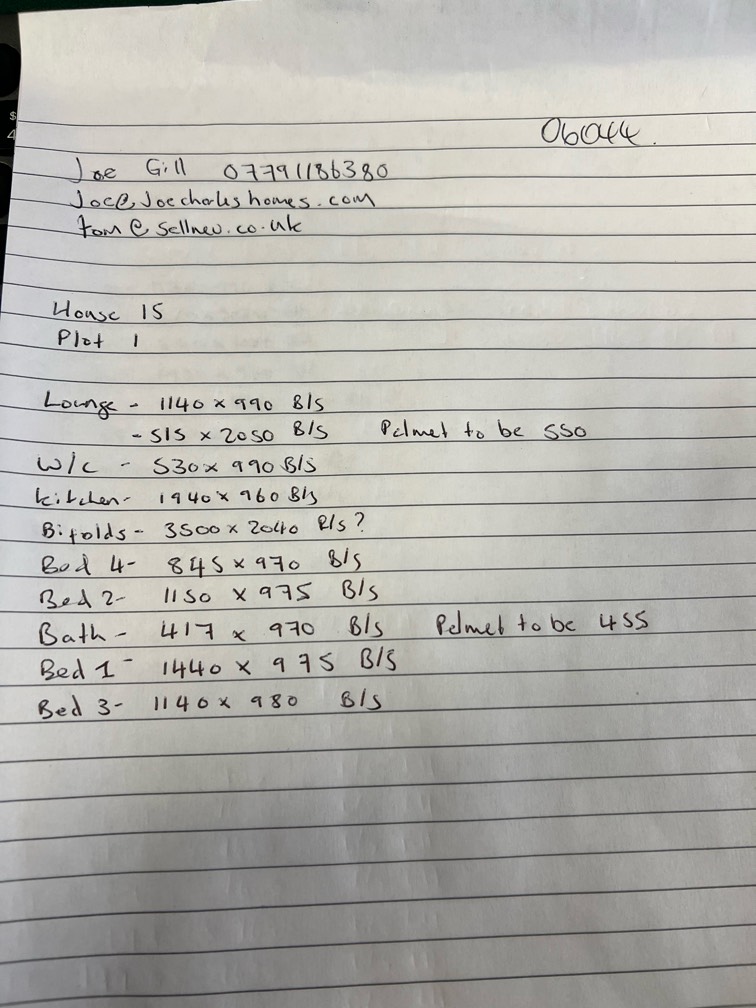 06044.
Joe Gill 07791186380
Joe@Joecharleshomes.com
tom@sellnew.co.uk
House 15
Plot 1
Lounge - 1140 x 990 B/S
- 515 x 2050 B/S Pelmet to be 550
W/C - 530 x 990 B/S
Kitchen - 1940 x 960 B/S
Bifolds - 3500 x 2040 R/S?
Bed 4 - 845 x 970 B/S
Bed 2 - 1150 x 975 B/S
Bath - 417 x 970 B/S Pelmet to be 455
Bed 1 - 1440 x 975 B/S
Bed 3 - 1140 x 980 B/S